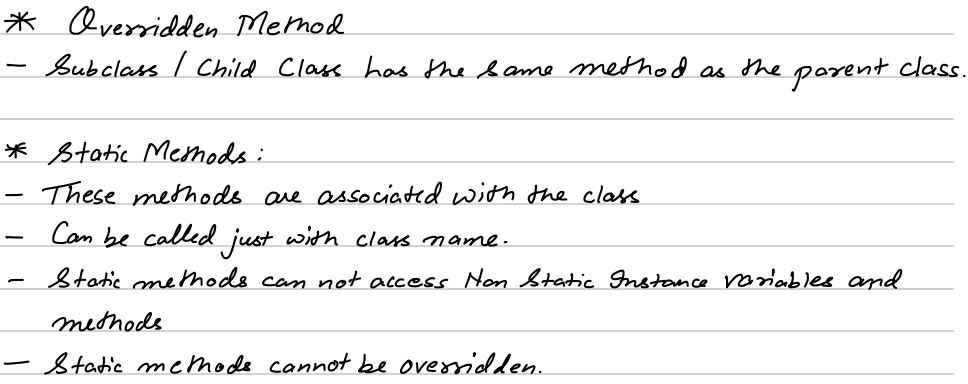 * Overridden Method
- Subclass / Child Class has the same method as the parent class.
* Static Methods:
- These methods are associated with the class
- Can be called just with class name.
- Static methods can not access Non Static Instance variables and
methods
- Static methods cannot be overridden.